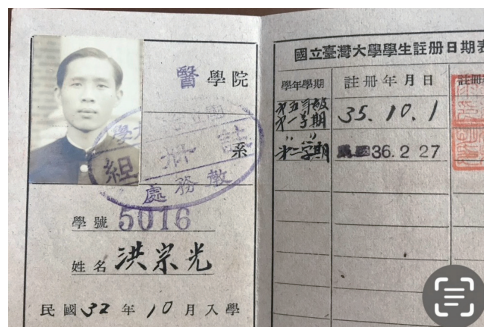 醫學院
系
註冊組
教務處
學號 5016
姓名 洪宗光
民國32年10月入學
國立臺灣大學學生註册日期表
學年學期 註册年月日 註册
第五年級第一學期 35.10.1
〃 第二學期 36.2 27